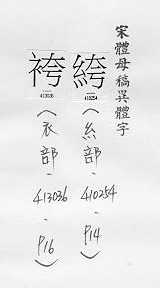 宋體母稿異體字
絝
410254
(糸部-410254-P14)
袴
413036
(衣部-413036-P16)